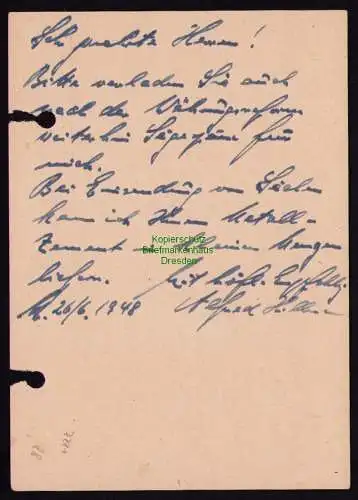 Sehr geehrte Herren!
Bitte verladen Sie auch
nach der Währungsreform
weiterhin Sägespäne für
mich.
Bei Einsendung von Säcken
kann ich Ihnen Metall-
Zement in kleinen Mengen
liefern. Mit höfl.
26/6. 1948 Alfred
Kopierschutz
Briefmarkenhaus
Dresden